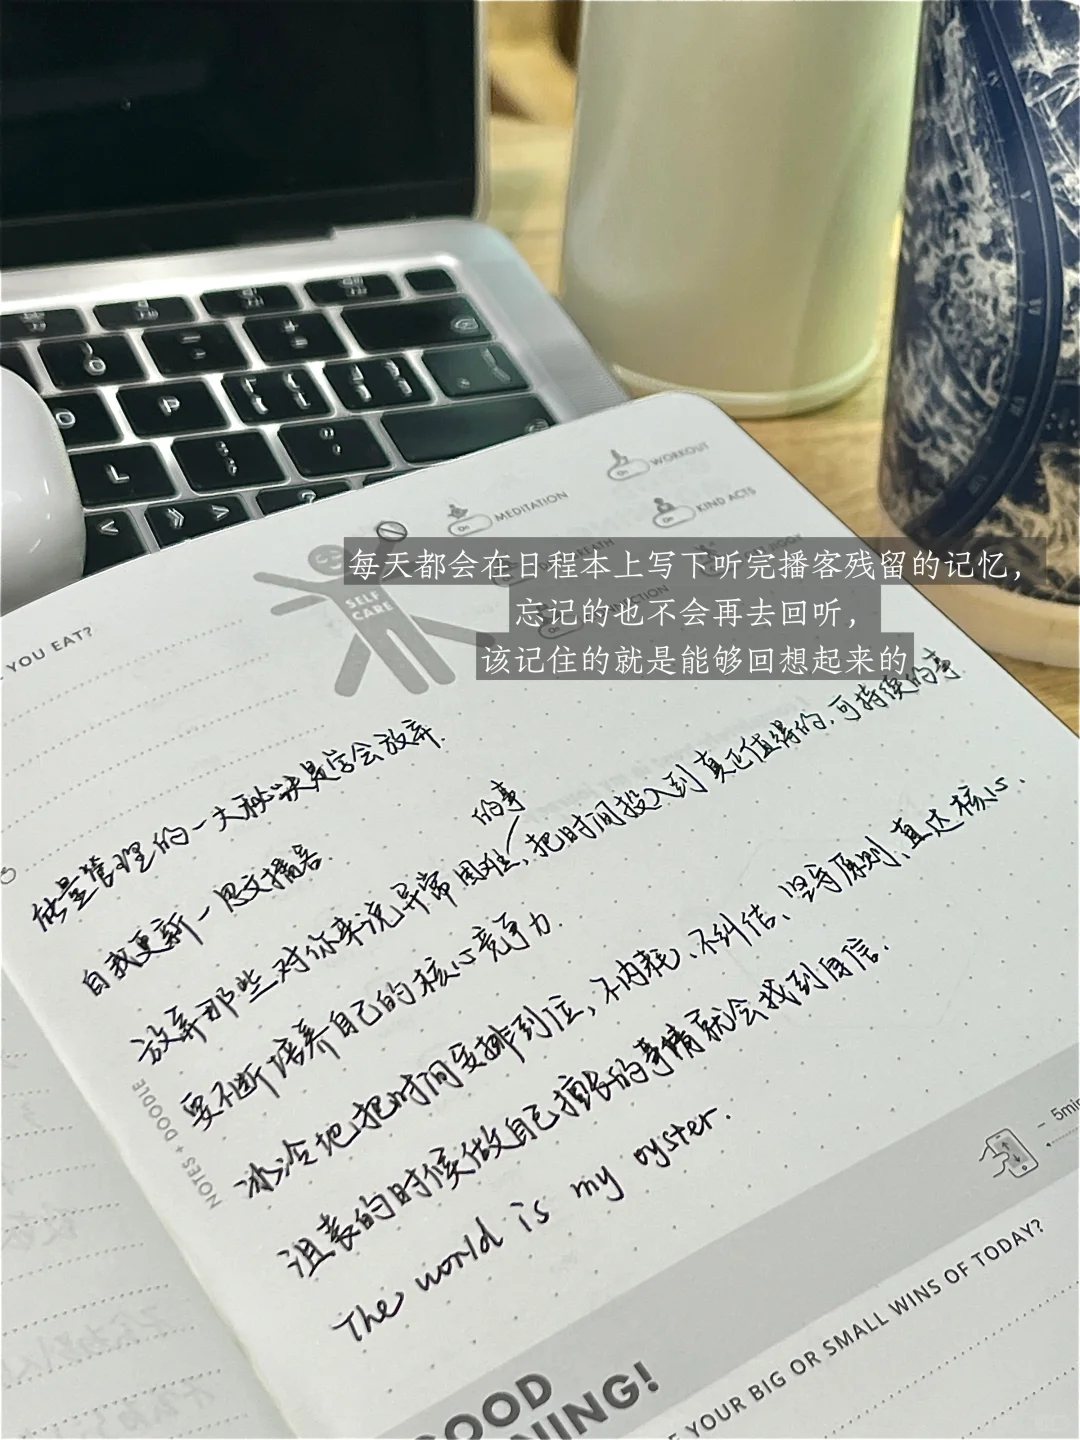 WORKOUT
MEDITATION
KIND ACTS
SELF
CARE
每天都会在日程本上写下听完播客残留的记忆，
忘记的也不会再去回听，
该记住的就是能够回想起来的
YOU EAT?
能量管理的一大秘诀是学会放弃.
自我更新一思文播客.
的事
放弃那些对你来说异常困难,把时间投入到真正值得的、可持续的事
要不断培养自己的核心竞争力.
冰冷地把时间安排到位,不内耗、不纠结、坚守原则、直达核心.
沮丧的时候做自己擅长的事情就会找到自信.
The world is my oyster.
NOTES + DOODLE
5min
YOUR BIG OR SMALL WINS OF TODAY?
OOD
NING!
P
L